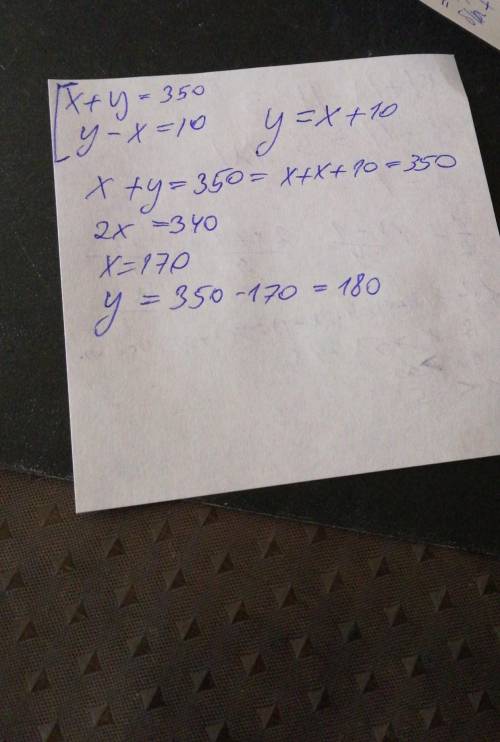 x+y=350
y-x=10 y=x+10
x+y=350= x+x+10=350
2x =340
x=170
y = 350-170 = 180